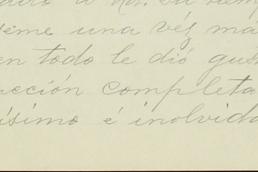 éme una véz má
en todo le dió gus
cción completa
ísimo é inolvida